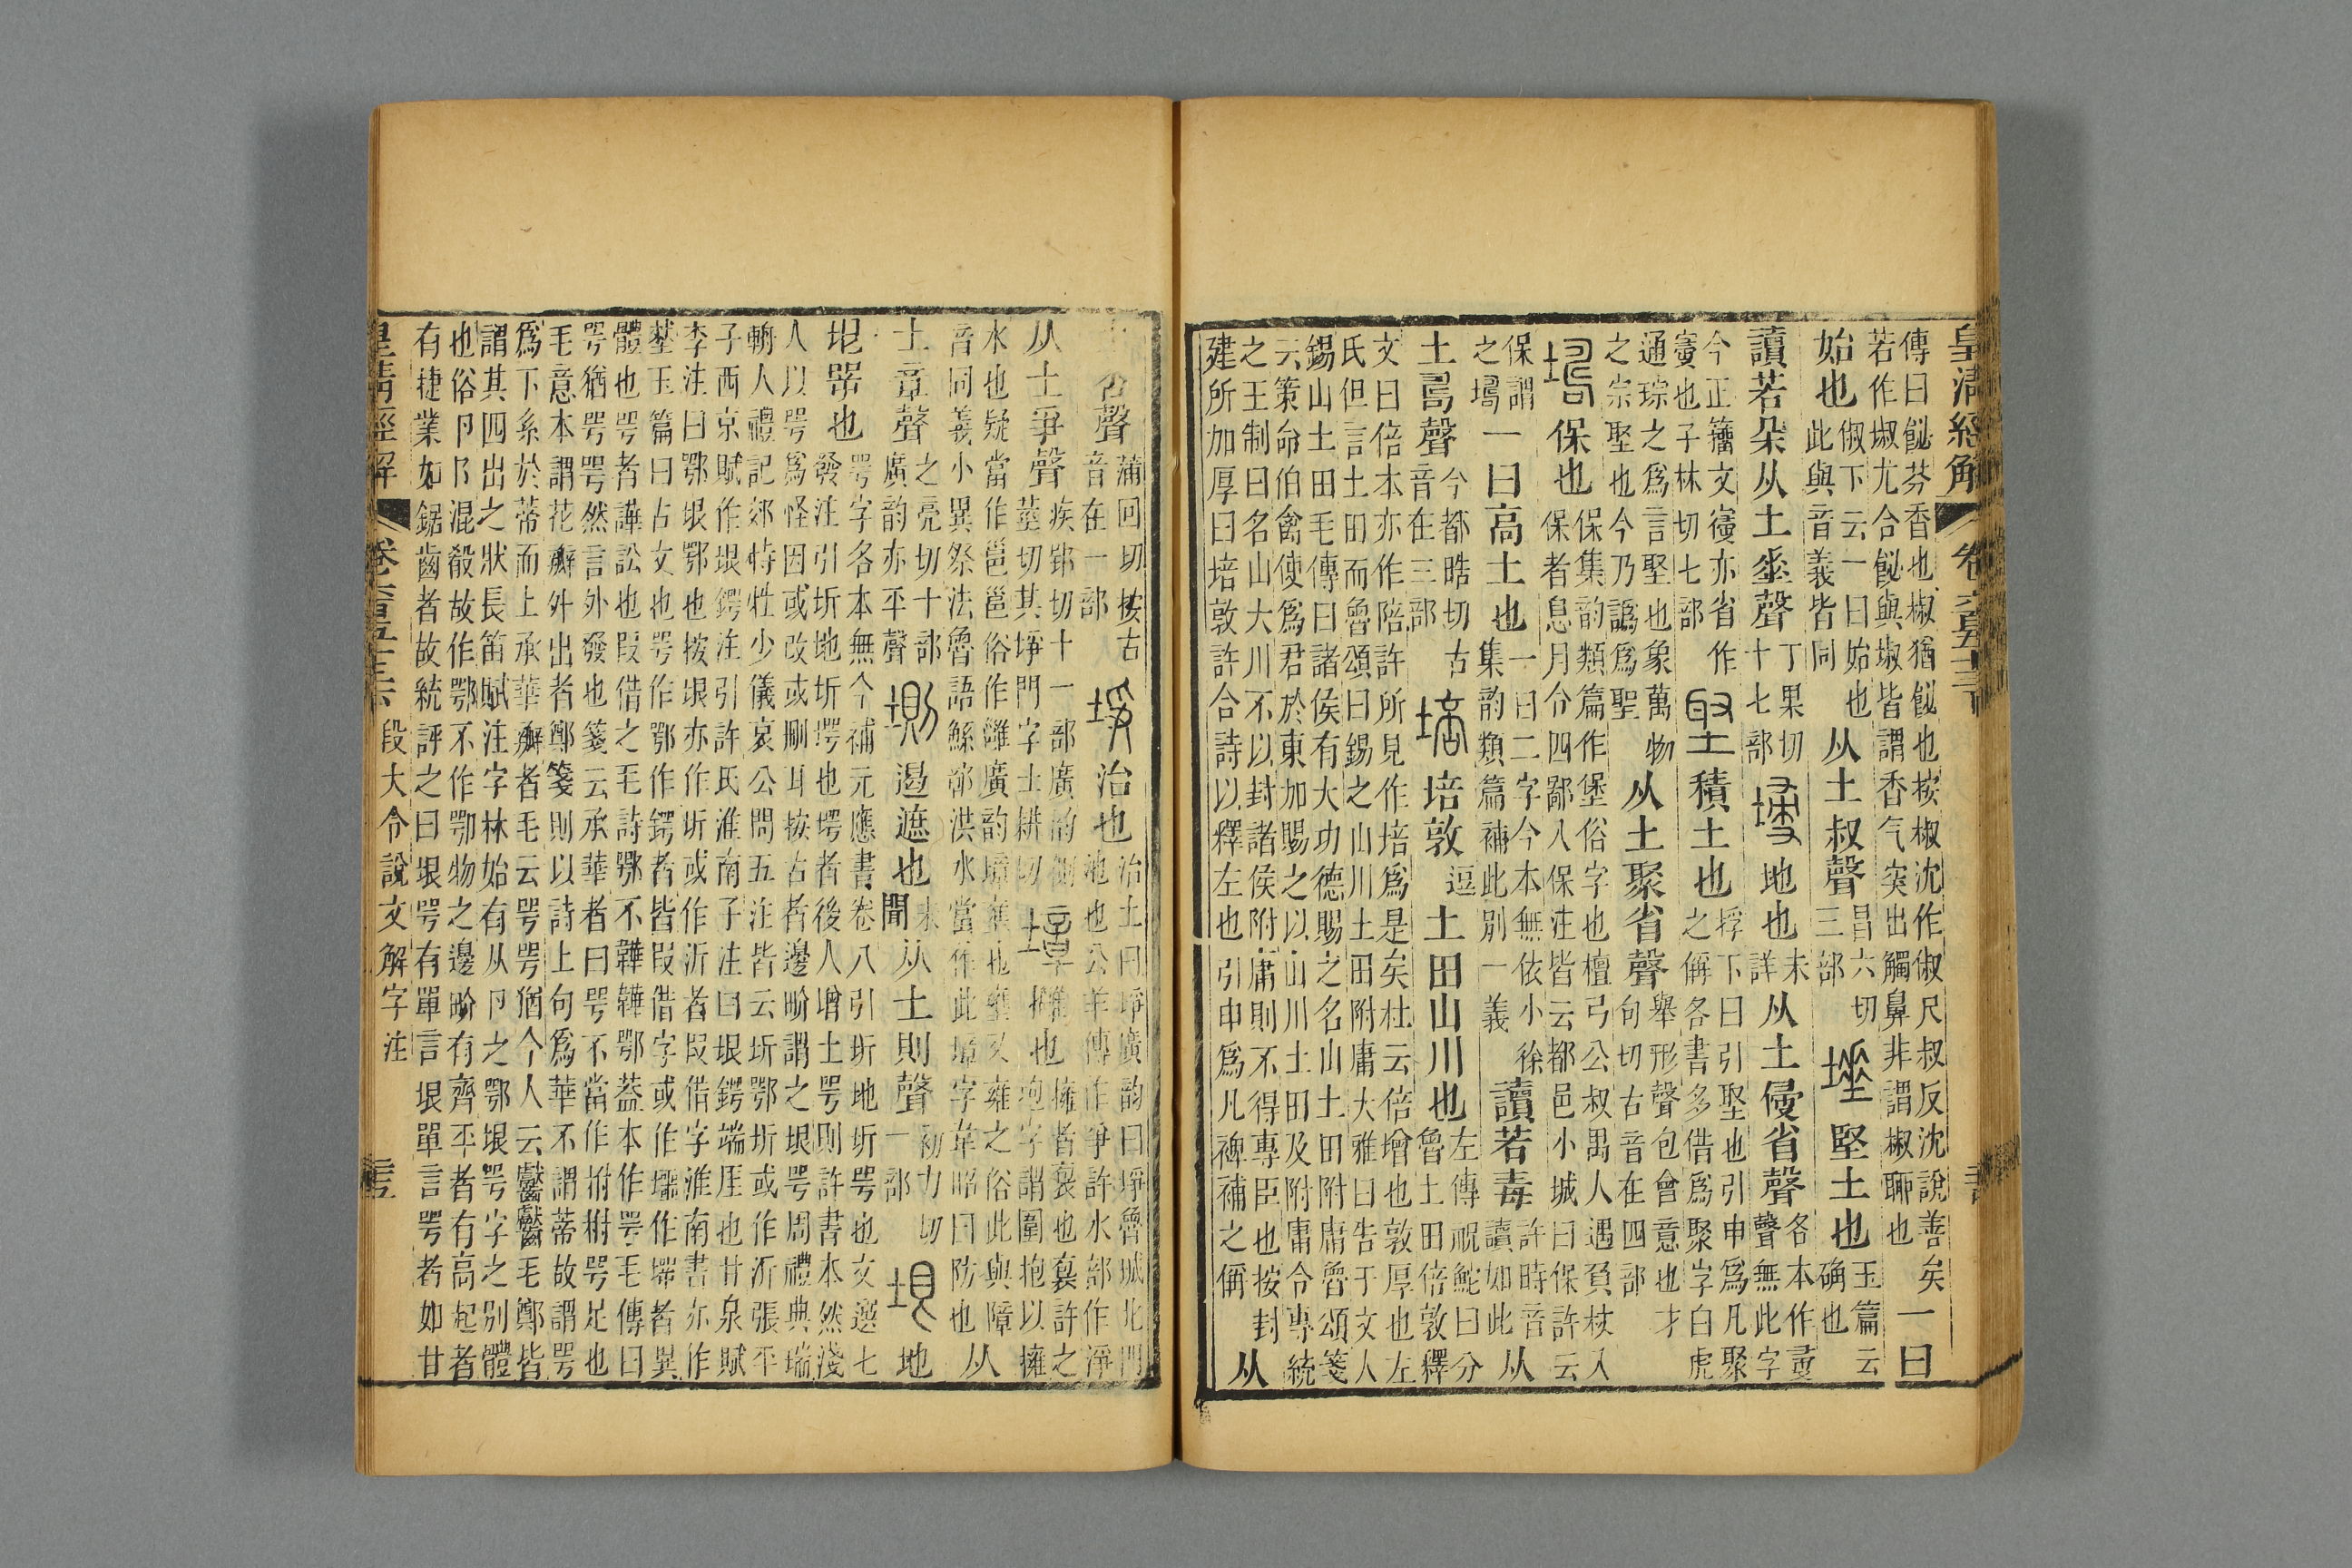 皇清經解
傳曰飶芬香也椒猶飶也按椒沈作俶尺叔反沈說善矣
若作埱尤合飶與埱皆謂香气突出觸鼻非謂椒聊也
一曰
始也
俶下云一曰始也
此與音義皆同
从土叔聲
昌六切
三部
埵
堅土也
玉篇云
确也
讀若朶从土𡍮聲
丁果切
十七部
地也
未
詳
从土㑴省聲
各本作㝱
聲無此字
今正籒文㝱亦省作
㝱也子林切七部
埾
積土也
捊下曰引埾也引申爲凡聚
之偁各書多借爲聚字白虎
通琮之爲言埾也象萬物
之宗埾也今乃譌爲聖
从土聚省聲
舉形聲包會意也才
句切古音在四部
保也
保集韵類篇作堡俗字也檀弓公叔禺人遇負杖入
保者息月令四鄙入保注皆云都邑小城曰保許云
保謂
之
一曰高土也
一曰二字今本無依小徐
集韵類篇補此別一義
讀若毒
許時音
讀如此
从
土𠷎聲
今都晧切古
音在三部
培
培敦
逗
土田山川也
左傳祝鮀曰分
魯土田倍敦釋
文曰倍本亦作陪許所見作培爲是矣杜云倍增也敦厚也左
氏但言土田而魯頌曰錫之山川土田附庸大雅曰告于文人
錫山土田毛傳曰諸侯有大功德賜之名山土田附庸魯頌箋
云策命伯禽使爲君於東加賜之以山川土田及附庸令專統
之王制曰名山大川不以封諸侯附庸則不得專臣也按封
建所加厚曰培敦許合詩以釋左也引申爲凡裨補之偁
从
土咅聲
蒲回切按古
音在一部
埩
治也
治土曰埩廣韵曰埩魯城北門
池也公羊傳作爭許水部作淨
从土爭聲
疾郢切十一部廣韵側
莖切其埩門字士耕切
墇
擁也
擁者褱也褱許之
抱字謂圍抱以擁
水也疑當作邕邕俗作雝廣韵墇壅也壅又雍之俗此與障
音同義小異祭法魯語鯀鄣洪水當作此墇字韋昭曰防也
从
土章聲
之亮切十部
廣韵亦平聲
堲
遏遮也
未
聞
从土則聲
初力切
一部
垠
地
垠咢也
咢字各本無今補元應書卷八引圻地圻咢也文選七
發注引圻地圻堮也堮者後人增土咢則許書本然淺
人以咢爲怪因或改或刪耳按古者邊畍謂之垠咢周禮典瑞
輈人禮記郊特牲少儀哀公問五注皆云圻鄂圻或作沂張平
子西京賦作垠鍔注引許氏淮南子注曰垠鍔端厓也甘泉賦
李注曰鄂垠鄂也按垠亦作圻或作沂者叚借字淮南書亦作
埜玉篇曰古文也咢作鄂作鍔者皆叚借字或作壖作堮者異
體也咢者譁訟也叚借之毛詩鄂不韡韡鄂葢本作咢毛傳曰
咢猶咢咢然言外發也箋云承華者曰咢不當作柎柎咢足也
毛意本謂花瓣外出者鄭箋則以詩上句爲華不謂蒂故謂咢
爲下系於蒂而上承華瓣者毛云咢咢猶今人云齾齾毛鄭皆
謂其四出之狀長笛賦注字林始有从卪之鄂垠咢字之別體
也俗卪阝混殽故作鄂不作卾物之邊畍有齊平者有高起者
有捷業如鋸齒者故統評之曰垠咢有單言垠單言咢者如甘
皇清經解
段大令說文解字注